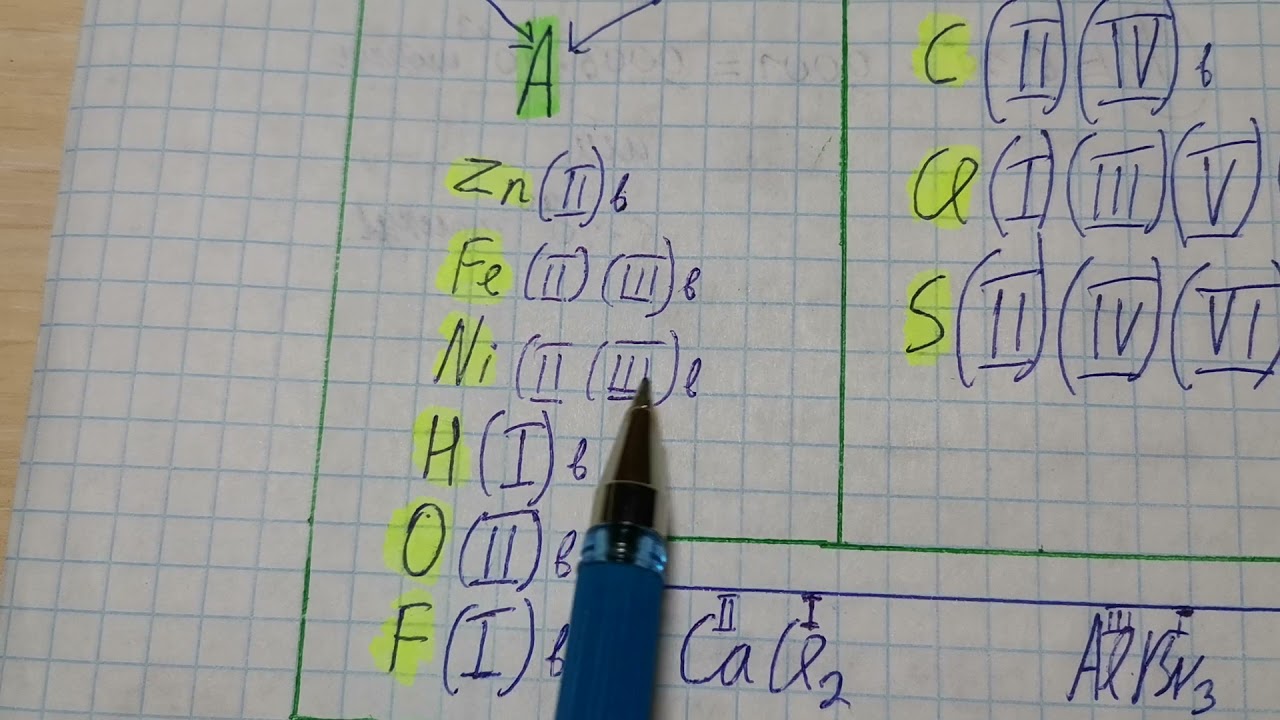 A
Zn (II) в
Fe (II) (III) в
Ni (II (III) в
H (I) в
O (II) в
F (I) в
C (II) (IV) в
Cl (I) (III) (V) (
S (II) (IV) (VI)
II I
CaCl2
III I
AlBr3